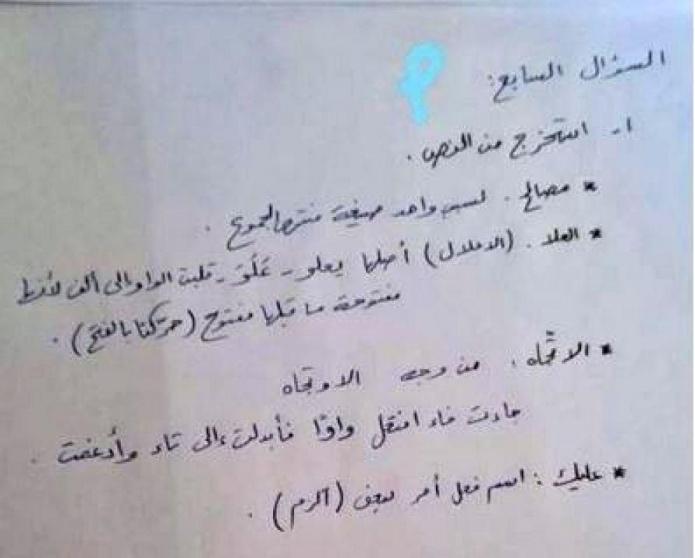 السؤال السابع:
١- استخرج من النص.
* مصالح. لسبب واحد صيغة منتهى الجموع.
* العلا. (الاعلال) أصلها يعلو - عَلَوَ - قلبت الواو الى ألف لأنها
مفتوحة ما قبلها مفتوح (حركتها بالفتح).
* الاتّجاه. من وجه الاوتجاه
جاءت فاء افتعل واوًا فأبدلت الى تاء وأدغمت.
* عليك: اسم فعل أمر بمعنى (الزم).